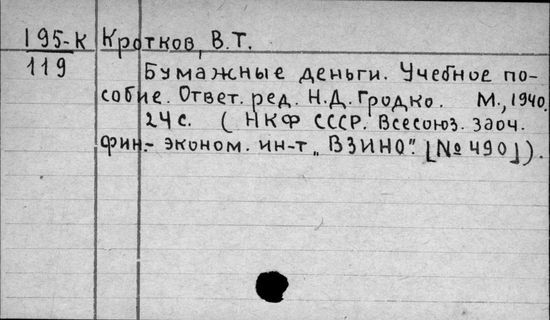 195-К Кротков, В.Т.
119
Бумажные деньги. Учебное по-
собие. Ответ. ред. Н.Д. Гродко. М., 1940.
24 с. ( НКФ СССР. Всесоюз. заоч.
фин.- эконом. ин-т „ВЗИНО". [№ 490] ).